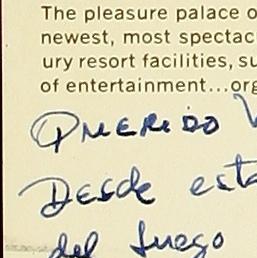 The pleasure palace o
newest, most spectac
ury resort facilities, su
of entertainment...org
QUERIDO V
Desde esta
del fuego